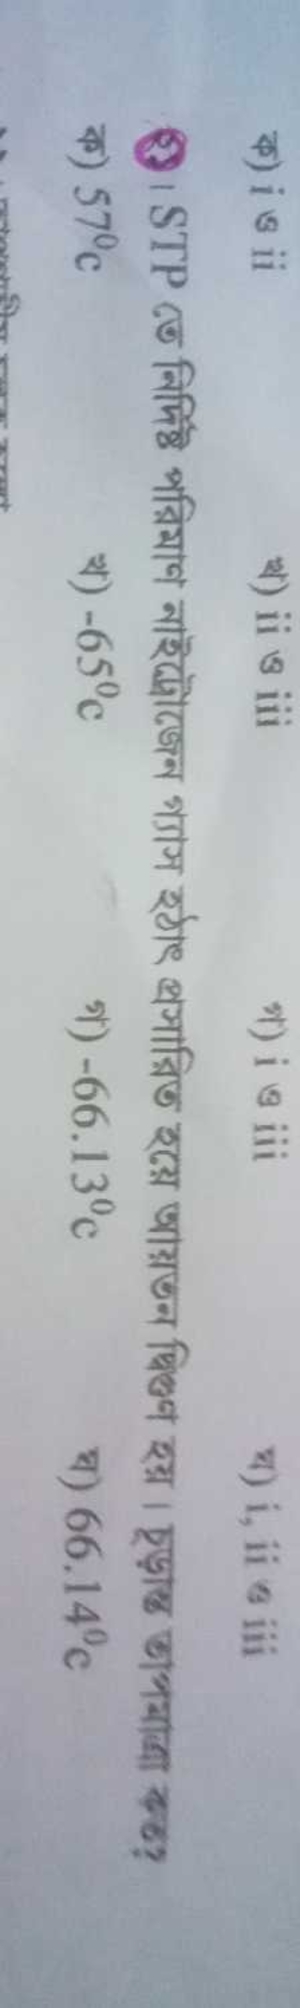 ক) i ও ii খ) ii ও iii গ) i ও iii ঘ) i, ii ও iii
। STP তে নির্দিষ্ট পরিমাণ নাইট্রোজেন গ্যাস হঠাৎ প্রসারিত হয়ে আয়তন দ্বিগুণ হয়। চূড়ান্ত তাপমাত্রা কত?
ক) 57⁰c খ) -65⁰c গ) -66.13⁰c ঘ) 66.14⁰c